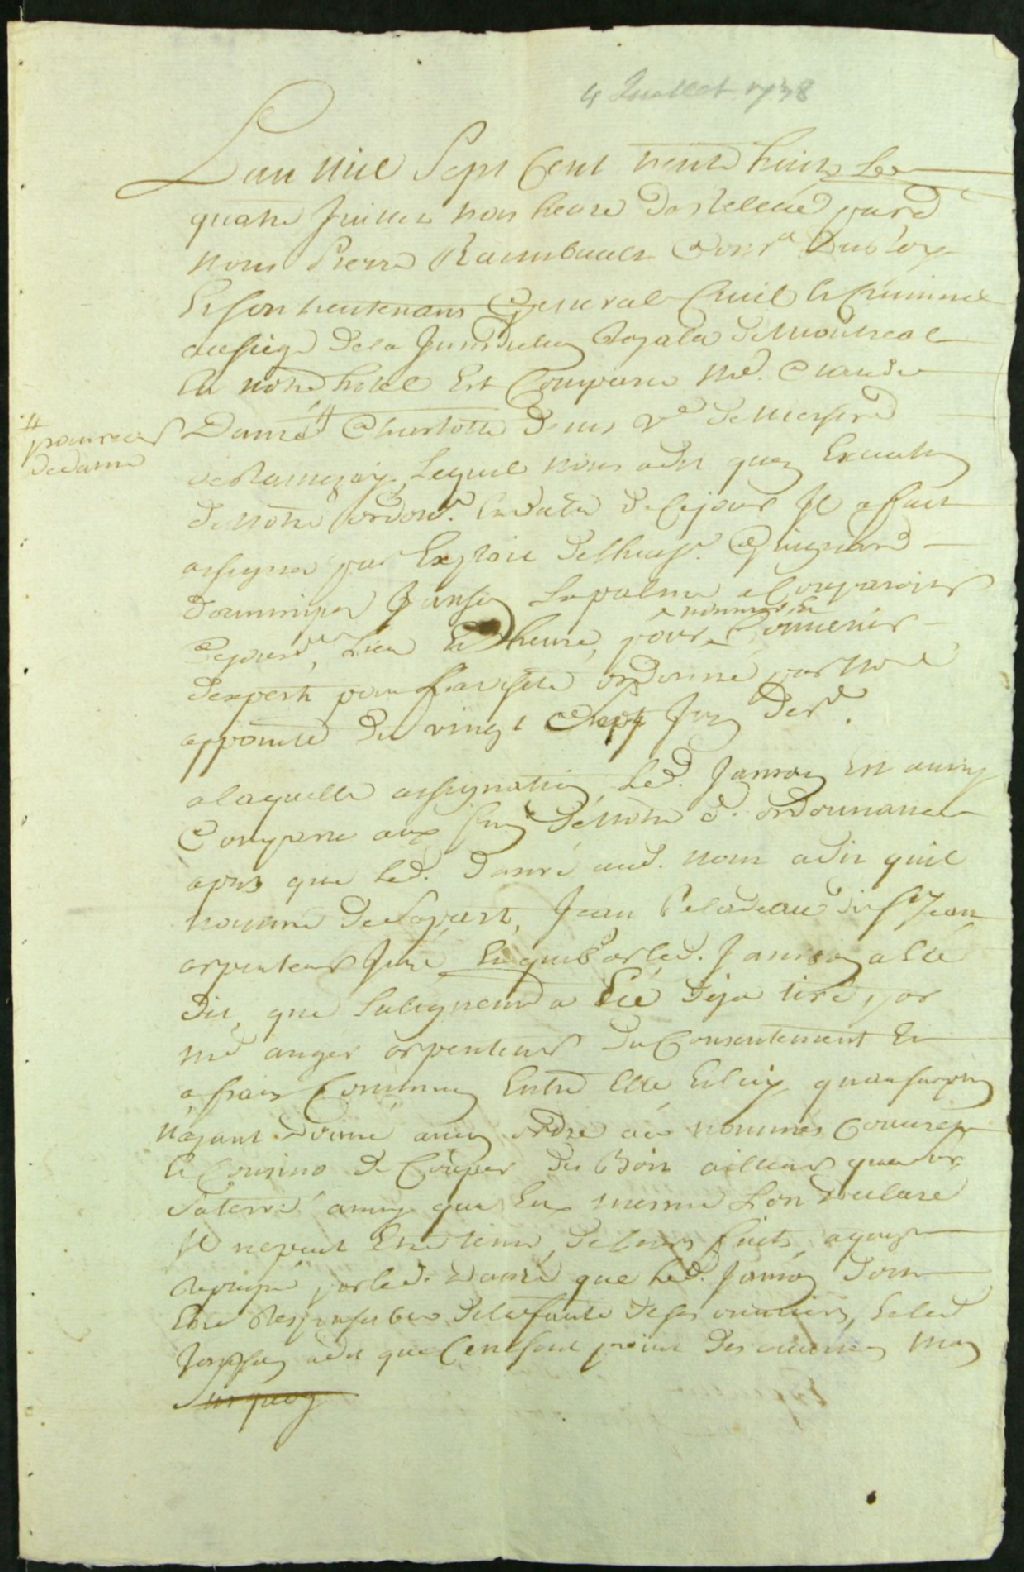 4 Juillet 1738
L'an mil Sept Cent trente huit Le
quatre Juillet trois heure de Relevée pard
Nous Pierre Raimbault Consr Du Roy
Et son lieutenant General Civil Et Criminel
au siege de la Jurisdiction Royalle de Montreal
En notre hotel Est Comparu Me. Claude
Danré # Charlotte Denis Ve de Messire
# procureur
de dame
de Ramezay, Lequel nous a dit quen Execution
de notre ordonce. En datte de Ce jour Il a fait
assigner par Exploit de lhuissr. Guignard
Dominique Janson Lapalme a Comparoir
Ce jourd, Lieu Et heure, pour Convenir
a nommer ou
d'expert pour fravisitte ordonné par notre
appointé du vingt Sept Juin derr.
a laquelle assignation Led. Janson Est aussy
Comparu aux fins de notre d. ordonnance
apres que led. Danré aud. nom a dit quil
nomme de sa part, Jean Peladeau dit St Jean
arpenteur Juré, Et que par led. Janson a Eté
dit, que lalignement a Eté deja tiré par
me angers arpenteur du Consentement Et
a frais Communs Entre Elle Et luy, quau surplus
n'ayant donné aucun ordre aux nommés
Et Cousino de Couper des Bois ailleurs que sur
sa terre, ainsy que Eux mesme L'on declaré
Il ne peut Etre tenu, de leurs faits, a quoy
Repliqué par led. Danré que led. Janson doit
Etre Responsable de la faute de ses ouvriers, Et led
Janson a dit que Ce ne sont point des ouvriers mais